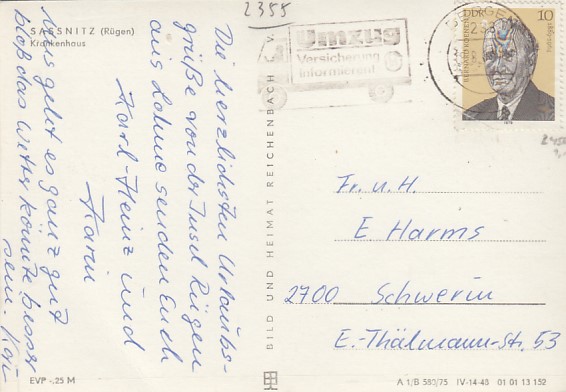 SASSNITZ (Rügen)
Krankenhaus
2355
Die herzlichsten Urlaubs-
grüße von der Insel Rügen
aus Lohme senden Euch
Karl-Heinz und
Karin
Uns geht es ganz gut
bloß das Wetter könnte besser
sein.
BILD UND HEIMAT REICHENBACH I. V.
Umzug
Versicherung
informieren!
BERGEN
DDR
10
1978
Fr. u. H.
E Harms
2700 Schwerin
E.-Thälmann-Str. 53
EVP -,25 M
A 1/B 580/75 IV-14-48 01 01 13 152